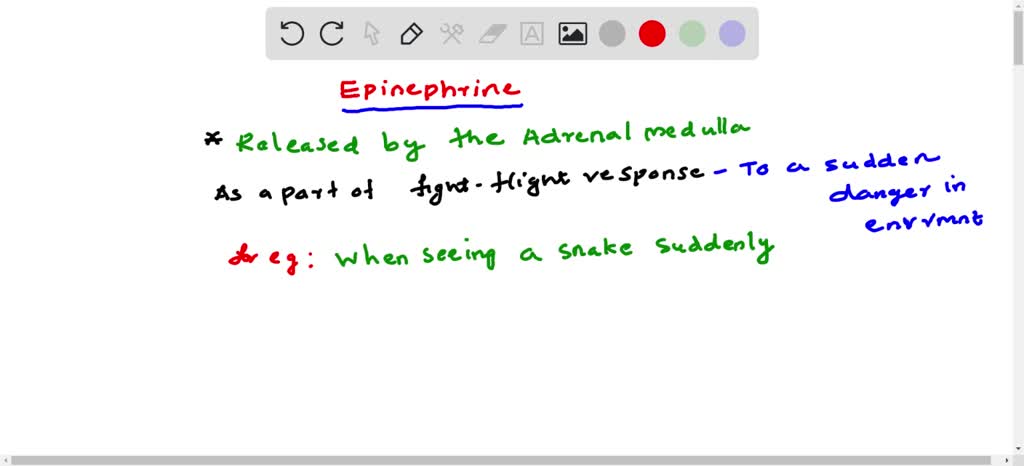 Epinephrine
* Released by the Adrenal medulla
As a part of fight-flight response - To a sudden
danger in
envrmnt
for eg: when seeing a snake suddenly